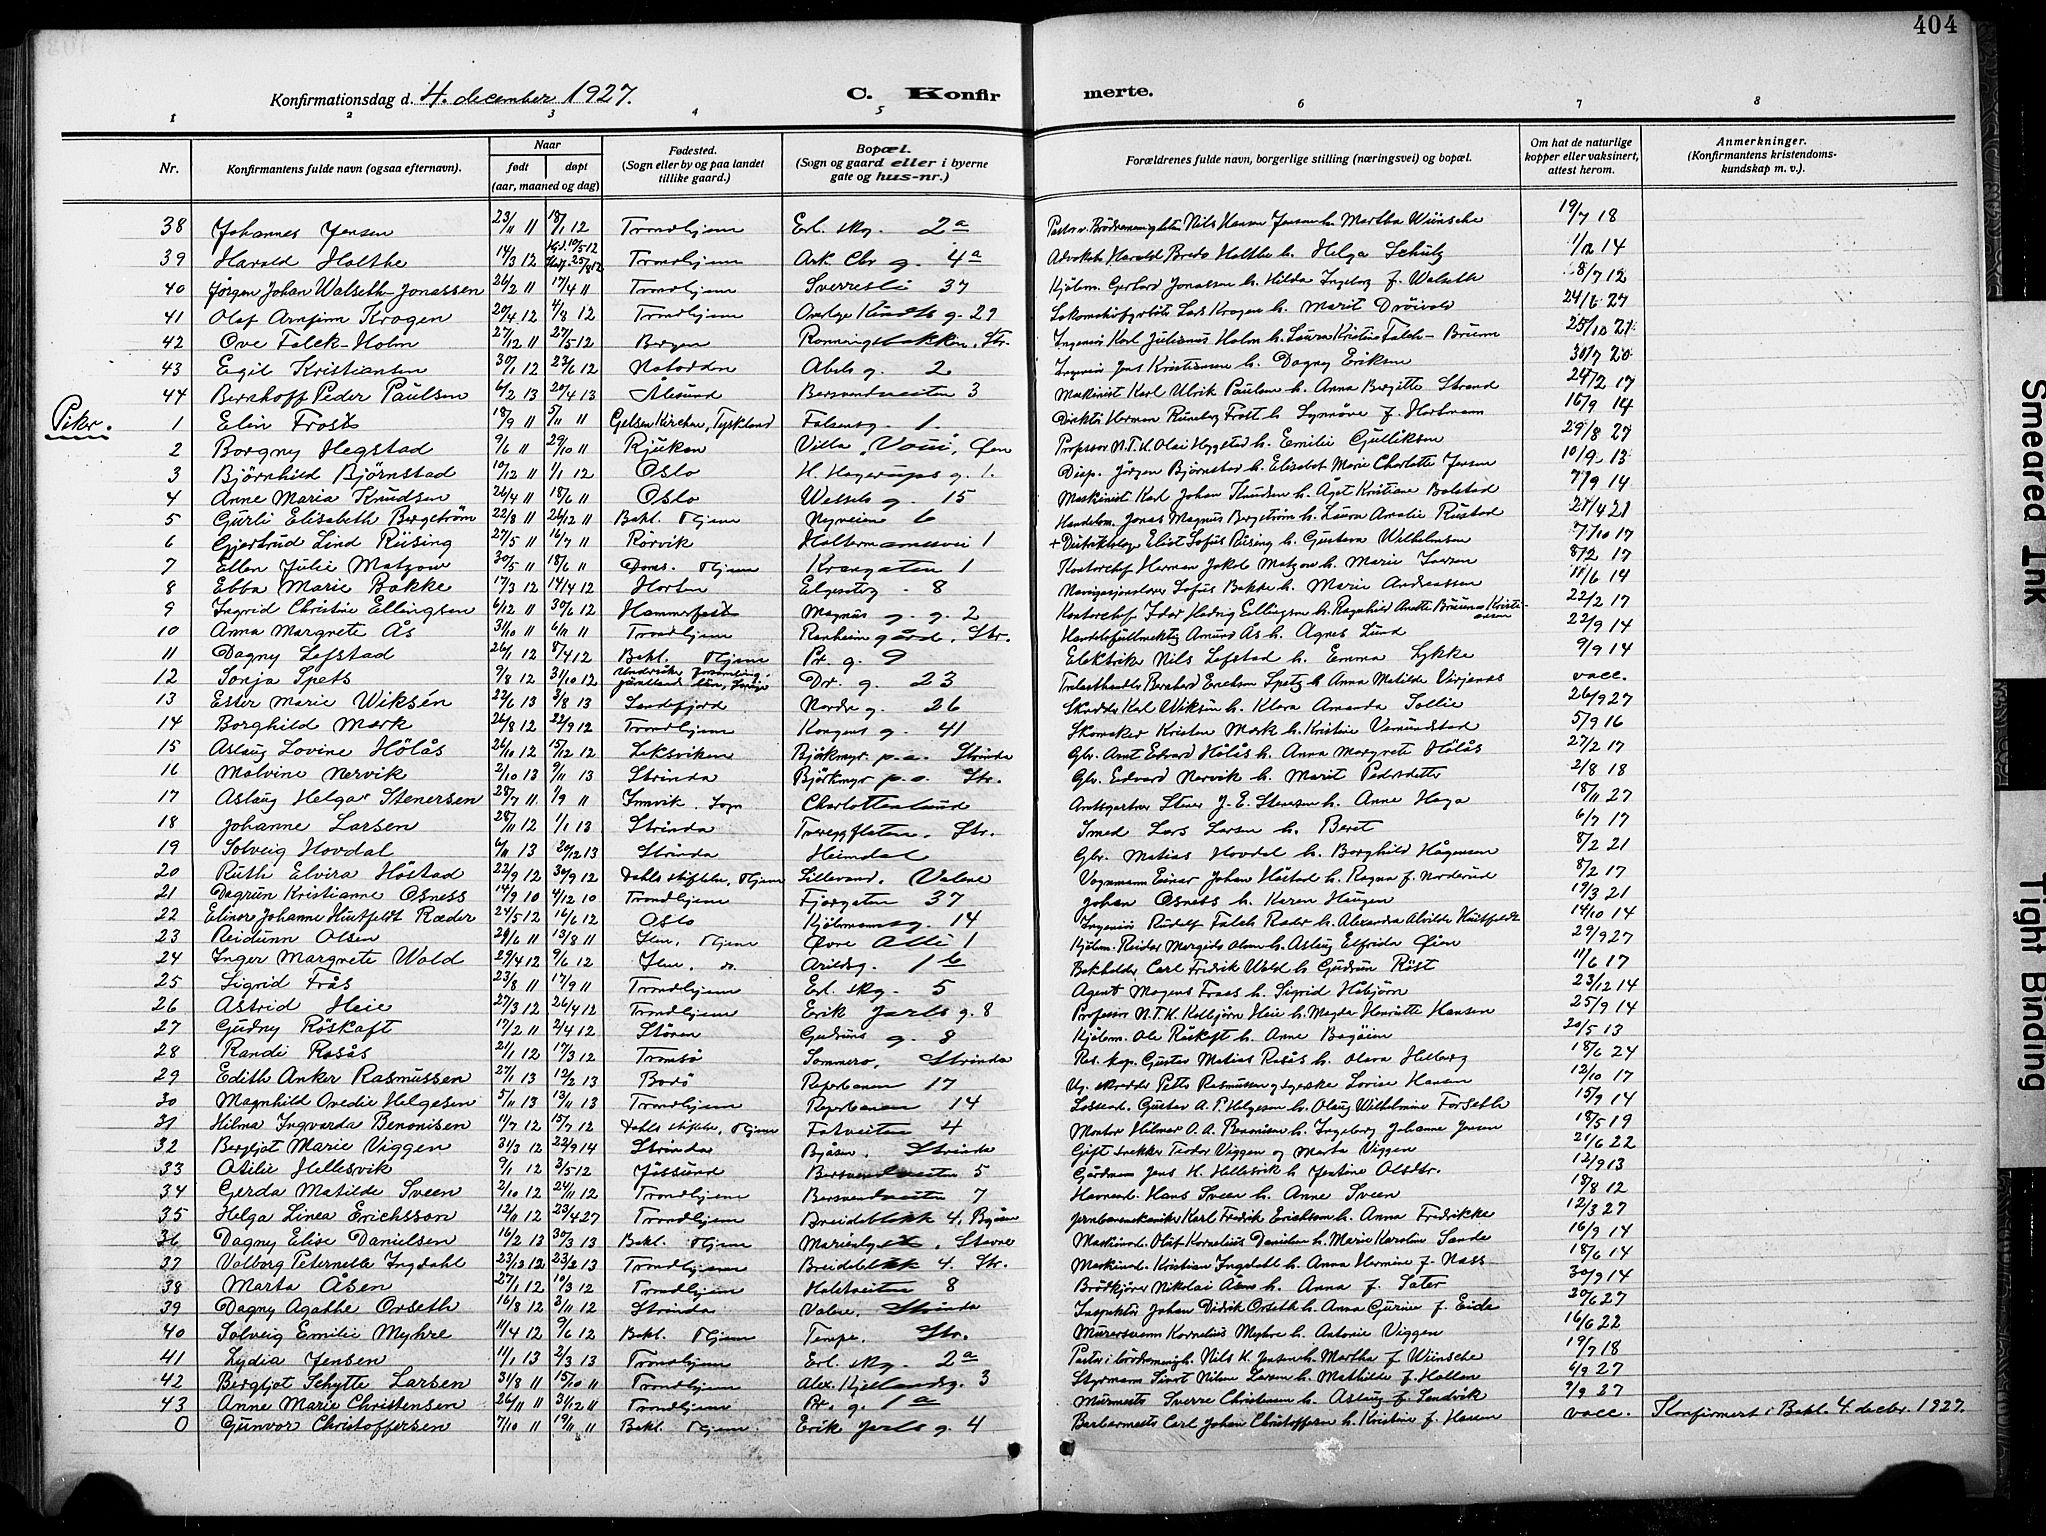 404
Konfirmationsdag d. 4. december 1927. C. Konfirmerte.
1 2 3 4 5 6 7 8
Nr. Konfirmantens fulde navn (ogsaa efternavn). Naar født døpt (aar, maaned og dag) Fødested. (Sogn eller by og paa landet tillike gaard.) Bopæl. (Sogn og gaard eller i byerne gate og hus-nr.) Forældrenes fulde navn, borgerlige stilling (næringsvei) og bopæl. Om hat de naturlige kopper eller vaksinert, attest herom. Anmerkninger. (Konfirmantens kristendomskundskap m. v.).
38 Johannes Jensen 23/11 11 18/1 12 Trondhjem Erl. skg. 2a Nils Hansen Jensen h. Martha Wünsche 19/7 18
39 Harald Holthe 14/3 12 Trondhjem Ark. Chr g. 4a Advokat Harald Bredo Holthe h. Helga Schulz 1/12 14
40 Jørgen Johan Walseth-Jonassen 26/2 11 17/4 11 Trondhjem Sverresli 37 Kjøbm. Gerhard Jonassen h. Hilda Ingeborg f. Walseth 8/7 12
41 Olaf Arnfinn Krogen 20/4 12 4/8 12 Trondhjem g. 29 Lars Krogen h. Marit 24/6 27
42 Ove Falck-Holm 27/12 11 27/5 12 Bergen Ronningsbakken, Str. Ingeniør Karl Julianus Holm h. Laura Kristine Falch-Bruun 25/10 21
43 Egil Kristiansen 30/1 12 23/6 12 Notodden Abels g. 2 Ingeniør Jens Kristiansen h. Dagny Eriksen 30/7 20
44 Bernhoff Peder Paulsen 6/2 13 20/4 13 Ålesund Bersvendveiten 3 Maskinist Karl Ulrik Paulsen h. Anna Bergitte Strand 24/2 17
Piker.
1 Elin Frost 18/9 11 5/11 11 Gelsen Kirchen, Tyskland Falsensg. 1. Direktør Herman Runeberg Frost h. Synnøve f. Hartmann 16/9 14
2 Borgny Hegstad 9/6 11 29/10 11 Rjukan Villa "Voui", Øen Professor N.T.H. Olai Hegstad h. Emilie Gulliksen 29/8 27
3 Bjørnhild Bjørnstad 10/12 11 1/1 12 Oslo H. Hagerups g. 1. Disp. Jörgen Bjørnstad h. Elisabet Marie Charlotte Jensen 10/9 13
4 Anne Maria Knudsen 26/4 11 18/6 11 Oslo Wessels g. 15 Maskinist Karl Johan Knudsen h. Ågot Kristiane Bolstad 7/9 14
5 Gurli Elisabeth Bergström 22/8 11 26/12 11 Bakl. Thjem Nyveien 6 Handelsm. Jonas Magnus Bergström h. Laura Amalie Rustad 21/4 21
6 Gjertrud Lind Riising 27/5 11 16/7 11 Rörvik Haltermannsvei 1 + Distriktslæge Eliot Sofus Riising h. Gustava Wilhelmsen 7/10 17
7 Ellen Julie Matzow 30/5 11 18/6 11 Doms. Thjem Krangaten 1 Kontorchef Herman Jakob Matzow h. Marie Larsen 8/2 17
8 Ebba Marie Bakke 17/3 12 14/4 12 Horten Elgesetg. 8 Navigasjonslærer Sofus Bakke h. Marie Andreassen 11/6 14
9 Ingrid Christine Ellingsen 6/12 11 30/6 12 Hammerfest Magnus g. g. 2 Kontorchef Idar Hedvig Ellingsen h. Ragnhild Anette Bruun Kristiansen 22/2 17
10 Anna Margrete Ås 31/10 11 6/11 11 Trondhjem Ranheim gård, Str. Handelsfullmektig Amund Ås h. Agnes Lund 22/9 14
11 Dagny Lefstad 26/11 12 8/4 12 Bakl. Thjem Pr. g. 9 Elektriker Nils Lefstad h. Emma Lykke 9/9 14
12 Sonja Spets 9/8 12 31/10 12 Undersåker Jämtland län, Sverige Dr. g. 23 Trelasthandler Bernhard Erichsen Spetz h. Anna Matilde Virjenes vacc.
13 Ester Marie Wiksén 22/6 13 3/8 13 Sandefjord Nordre g. 26 Skredder Karl Wiksén h. Klara Amanda Sollie 26/9 27
14 Borghild Mork 26/8 12 22/9 12 Trondhjem Kongens g. 41 Skomaker Kristen Mork h. Kristine Vemundstad 5/9 16
15 Aslaug Lovine Hölås 26/10 12 15/12 12 Leksviken Björkmyr p.a. Strinda Gbr. Arnt Edvard Hölås h. Anna Margrete Hölås 27/2 17
16 Malvine Nervik 2/10 13 9/11 13 Strinda Björkmyr p.a. Str. Gbr. Edvard Nervik h. Marit Pedersdatter 2/8 18
17 Aslaug Helga Stenersen 28/7 11 1/9 11 Innvik, Sogn Charlottenlund Amtsgartner Stener J. E. Stenersen h. Anne Haga 18/11 27
18 Johanne Larsen 28/11 12 1/1 13 Strinda Tvereggfloten, Str. Smed Lars Larsen h. Beret 6/7 17
19 Solveig Hovdal 6/11 13 20/12 13 Strinda Heimdal Gbr. Matias Hovdal h. Borghild Hågensen 8/2 21
20 Ruth Elvira Höstad 22/9 12 30/9 12 Dahls stiftelse, Thjem Lillevand, Valene Vognmann Einar Johan Höstad h. Ragna f. Norderud 8/2 17
21 Dagrun Kristianne Osness 14/9 10 4/12 10 Trondhjem Fjorgaten 37 Johan Osness h. Karen Haugen 19/3 21
22 Elinor Johanne Huitfeldt Ræder 24/5 12 16/6 12 Oslo Kjøbmannsg. 14 Ingeniør Rudolf Falch Ræder h. Alexandra Alvilde Huitfeldt 14/10 14
23 Reidunn Olsen 29/6 11 13/8 11 Ilen, Thjem Øvre Allé 1 Kjøbm. Reidar Margido Olsen h. Aslaug Elfrida Øien 29/9 27
24 Inger Margrete Wold 29/4 12 9/6 12 Ilen, do. Arildsg. 1b Bokholder Carl Fredrik Wold h. Gudrun Röst 11/6 17
25 Sigrid Frås 23/8 11 17/9 11 Trondhjem Erl. skg. 5 Agent Mogens Fraas h. Sigrid Håbjörn 23/12 14
26 Astrid Heie 27/3 12 26/4 12 Trondhjem Erik Jarls g. 8 Professor N.T.H. Kolbjørn Heie h. Magda Henriette Hansen 25/9 14
27 Gudny Röskaft 17/2 11 2/4 12 Støren Gudruns g. 8 Kjøbm. Ole Röskaft h. Anne Bogøien 20/5 13
28 Randi Rosås 21/1 12 17/3 12 Tromsø Sommero, Strinda Res. kap. Gustav Matias Rosås h. Olava Helberg 18/6 24
29 Edith Anker Rasmussen 27/1 13 12/2 13 Bodø Reperbanen 17 Ug. skredder Petter Rasmussen og syerske Lovise Hansen 12/10 17
30 Magnhild Ovedie Helgesen 5/11 13 13/11 13 Trondhjem Reperbanen 14 Lossearb. Gustav A. P. Helgesen h. Olaug Wilhelmine Forseth 15/9 14
31 Hilma Ingvarda Benonisen 11/7 12 15/7 12 Dahls stiftelse, Thjem Fatveiten 4 Montør Hilmar O. A. Benonisen h. Ingeborg Johanne Jensen 18/5 19
32 Bergljot Marie Viggen 31/3 12 22/9 14 Strinda Byåsen, Strinda Gift snekker Teodor Viggen og Marta Viggen 21/6 22
33 Otilie Hellesvik 9/1 12 3/5 12 Jössund Bersvendveiten 5 Gårdmann Jens H. Hellesvik h. Jentine Olsdtr. 12/9 13
34 Gerda Matilde Sveen 2/10 12 24/11 12 Trondhjem Bersvendveiten 7 Havnearb. Hans Sveen h. Anne Sveen 18/8 12
35 Helga Linea Erichsson 12/11 12 23/4 27 Trondhjem Breidablikk 4, Byåsen Jernbanemekaniker Karl Fredrik Erichsson h. Anna Fredrikke 12/3 27
36 Dagny Elise Danielsen 16/2 13 30/3 13 Bakl. Thjem Marienlyst, Stavne Maskinarb. Olaf Kornelius Danielsen h. Marie Karoline Sande 16/9 14
37 Valborg Peternelle Ingdahl 23/12 12 23/2 13 Trondhjem Breidablikk 4. Str. Maskinarb. Kristian Ingdahl h. Anna Hermine f. Nass 18/6 14
38 Marta Åsen 27/1 12 10/3 12 Trondhjem Holstveiten 8 Brödkjører Nikolai Åsen h. Anna f. Sater 30/9 14
39 Dagny Agathe Orseth 16/8 12 3/11 12 Strinda Valene, Strinda Inspektør Johan Didrik Orseth h. Anna Gurine f. Eide 20/6 27
40 Solveig Emilie Myhre 11/4 12 9/6 12 Bakl. Thjem Tempe, Str. Murersvenn Kornelius Myhre h. Antonie Viggen 16/6 22
41 Lydia Jensen 11/1 13 2/3 13 Trondhjem Erl. skg. 2a Pastor i brødremenigh. Nils H. Jensen h. Martha f. Wünsche 19/7 18
42 Bergljot Schytte Larsen 31/8 11 15/10 11 Trondhjem Alex. Kjellandsg. 3 Styrmann Sivert Nilsen Larsen h. Mathilde f. Hollan 6/9 27
43 Anne Marie Christensen 26/11 11 31/12 11 Trondhjem Pr. g. 1a Murmester Sverre Christensen h. Aslaug f. Sandvik 9/9 27
0 Gunvor Christoffersen 7/10 11 19/11 11 Bakl. Thjem. Erik Jarls g. 4 Barbermester Carl Johan Christoffersen h. Kristine f. Hansen vacc. Konfirmert i Bakl. 4. decbr. 1927.
Smeared Ink
Tight Binding